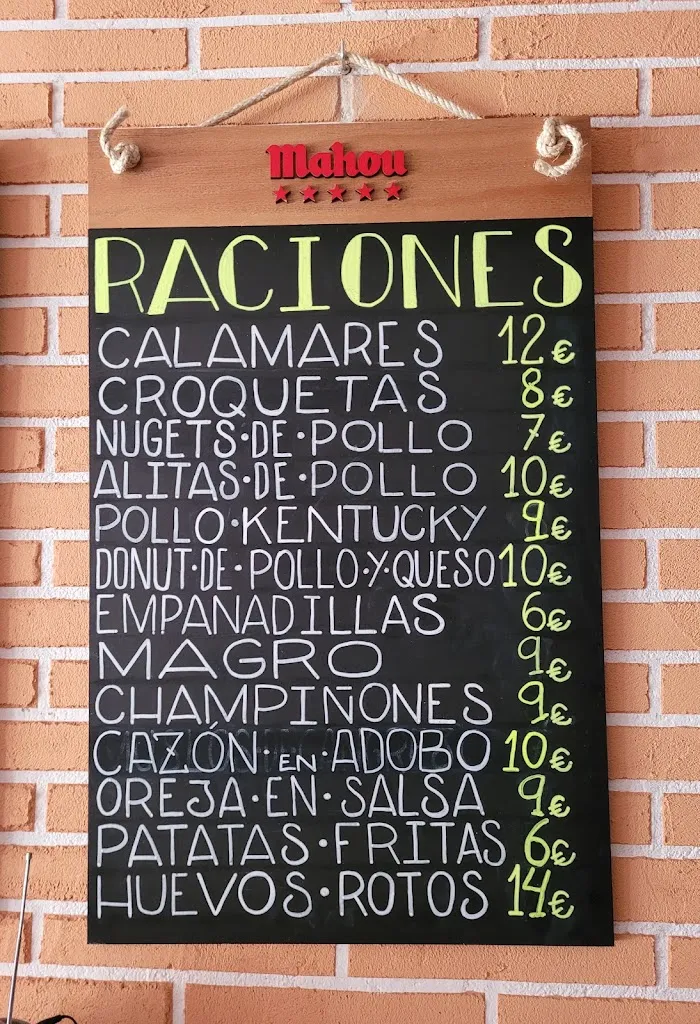 Mahou
RACIONES
CALAMARES 12€
CROQUETAS 8€
NUGETS·DE·POLLO 7€
ALITAS·DE·POLLO 10€
POLLO·KENTUCKY 9€
DONUT·DE·POLLO·Y·QUESO 10€
EMPANADILLAS 6€
MAGRO 9€
CHAMPIÑONES 9€
CAZÓN·EN·ADOBO 10€
OREJA·EN·SALSA 9€
PATATAS·FRITAS 6€
HUEVOS·ROTOS 14€